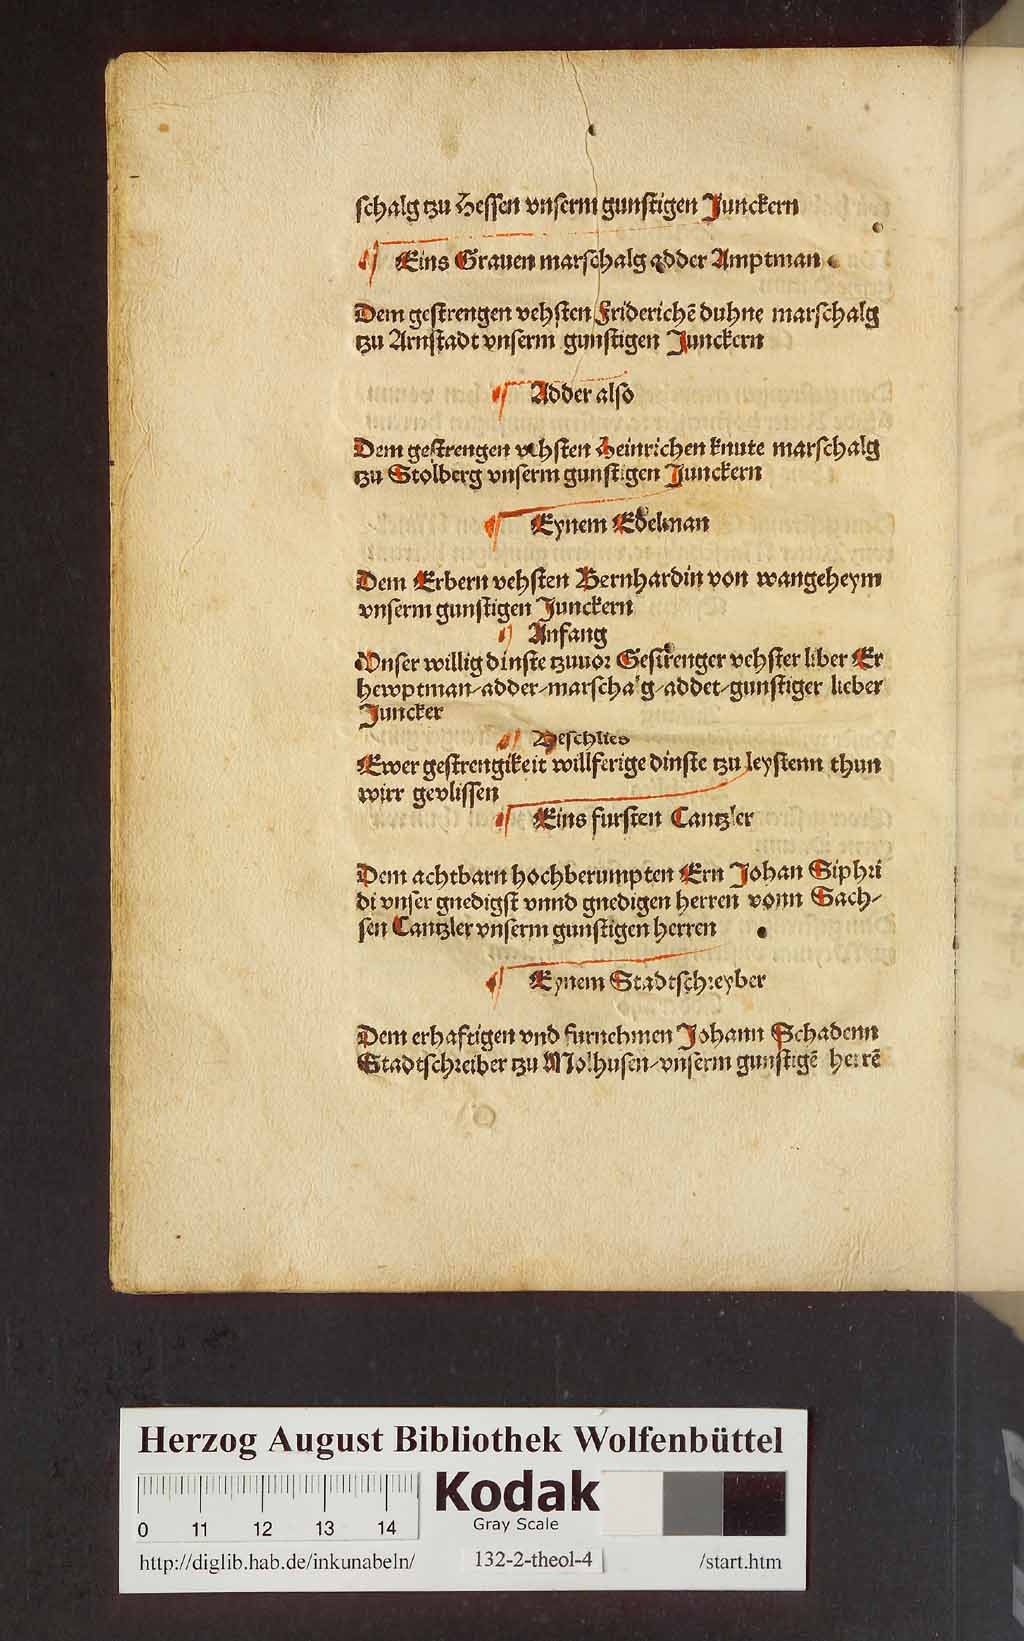 schalg tzu Hessen vnserm gunstigen Junckern
Eins Grauen marschalg adder Amptman
Dem gestrengen vehsten Friderichē duhne marschalg
tzu Arnstadt vnserm gunstigen Junckern
Adder also
Dem gestrengen vehsten Heinrichen knute marschalg
tzu Stolberg vnserm gunstigen Junckern
Eynem Edelman
Dem Erbern vehsten Bernhardin von wangeheym
vnserm gunstigen Junckern
Anfang
Vnser willig dinste tzuuor Gestrenger vehster liber Er
hewptman/adder/marschalg/addet/gunstiger lieber
Juncker
Beschlies
Ewer gestrengikeit willferige dinste tzu leystenn thun
wirr gevlissen
Eins fursten Cantzler
Dem achtbarn hochberumpten Ern Johan Siphri
di vnser gnedigst vnnd gnedigen herren vonn Sach/
sen Cantzler vnserm gunstigen herren
Eynem Stadtschreyber
Dem erhaftigen vnd furnehmen Johann Schadenn
Stadtschreiber tzu Molhusen/vnserm gunstigē herrē
Herzog August Bibliothek Wolfenbüttel
Kodak
Gray Scale
0 11 12 13 14
http://diglib.hab.de/inkunabeln/ 132-2-theol-4 /start.htm